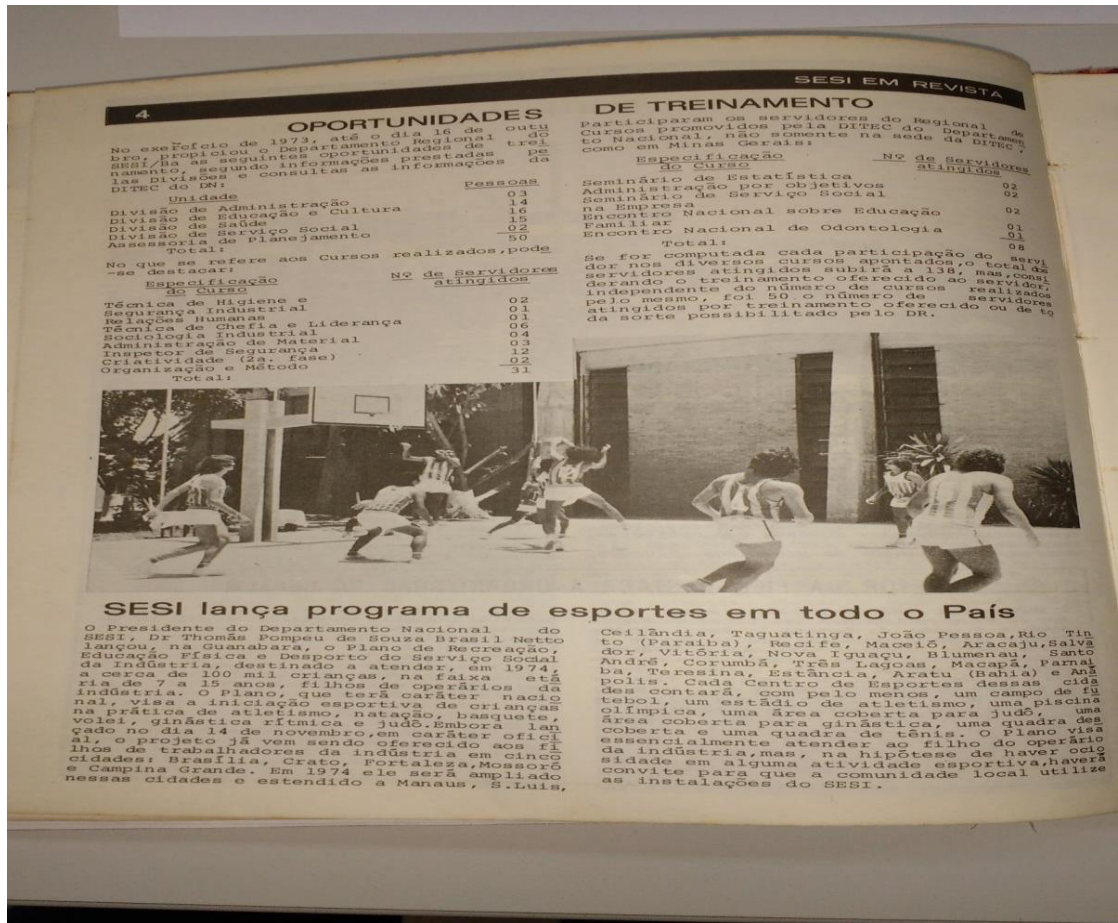 4
SESI EM REVISTA
OPORTUNIDADES DE TREINAMENTO
No exercício de 1973, até o dia 16 de outu
bro, propiciou o Departamento Regional do
SESI/Ba as seguintes oportunidades de trei
namento, segundo informações prestadas pe
las Divisões e consultas as informações da
DITEC do DN:
Unidade Pessoas
Divisão de Administração 03
Divisão de Educação e Cultura 14
Divisão de Saúde 16
Divisão de Serviço Social 15
Assessoria de Planejamento 02
Total: 50
No que se refere aos Cursos realizados,pode
-se destacar:
Especificação Nº de Servidores
do Curso atingidos
Técnica de Higiene e
Segurança Industrial 02
Relações Humanas 01
Técnica de Chefia e Liderança 01
Sociologia Industrial 06
Administração de Material 04
Inspetor de Segurança 03
Criatividade (2a. fase) 12
Organização e Método 02
Total: 31
Participaram os servidores do Regional de
Cursos promovidos pela DITEC do Departamen
to Nacional, não somente na sede da DITEC,
como em Minas Gerais:
Especificação Nº de Servidores
do Curso atingidos
Seminário de Estatística
Administração por objetivos 02
Seminário de Serviço Social 02
na Empresa
Encontro Nacional sobre Educação 02
Familiar 01
Encontro Nacional de Odontologia 01
Total: 08
Se for computada cada participação do servi
dor nos diversos cursos apontados,o total dos
servidores atingidos subirá a 138, mas,consi
derando o treinamento oferecido ao servidor,
independente do número de cursos realizados
pelo mesmo, foi 50 o número de servidores
atingidos por treinamento oferecido ou de to
da sorte possibilitado pelo DR.
SESI lança programa de esportes em todo o País
O Presidente do Departamento Nacional do
SESI, Dr Thomás Pompeu de Souza Brasil Netto
lançou, na Guanabara, o Plano de Recreação,
Educação Física e Desporto do Serviço Social
da Indústria, destinado a atender, em 1974,
a cerca de 100 mil crianças, na faixa etá
ria de 7 a 15 anos, filhos de operários da
indústria. O Plano, que terá caráter nacio
nal, visa a iniciação esportiva de crianças
na prática de atletismo, natação, basquete,
volei, ginástica rítmica e judô.Embora lan
çado no dia 14 de novembro,em caráter ofici
al, o projeto já vem sendo oferecido aos fi
lhos de trabalhadores da indústria em cinco
cidades: Brasília, Crato, Fortaleza,Mossoró
e Campina Grande. Em 1974 ele será ampliado
nessas cidades e estendido a Manaus, S.Luis,
Ceilândia, Taguatinga, João Pessoa,Rio Tin
to (Paraiba), Recife, Maceió, Aracaju,Salva
dor, Vitória, Nova Iguaçu, Blumenau, Santo
André, Corumbá, Três Lagoas, Macapá, Parnai
ba, Teresina, Estância, Aratu (Bahia) e Aná
polis. Cada Centro de Esportes dessas cida
des contará, com pelo menos, um campo de fu
tebol, um estádio de atletismo, uma piscina
olímpica, uma área coberta para judô, uma
área coberta para ginástica, uma quadra des
coberta e uma quadra de tênis. O Plano visa
essencialmente atender ao filho do operário
da indústria,mas, na hipótese de haver ocio
sidade em alguma atividade esportiva,haverá
convite para que a comunidade local utilize
as instalações do SESI.